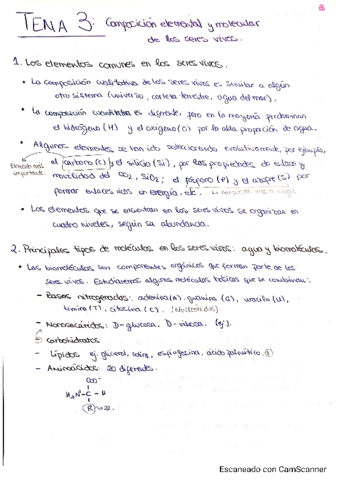 TEMA 3: Composición elemental y molecular
de los seres vivos.
1. Los elementos comunes en los seres vivos.
• La composición cualitativa de los seres vivos es similar a algún
otro sistema (universo, corteza terrestre, agua del mar).
• La composición cuantitativa es diferente, pero en la mayoría predominan
el hidrógeno (H) y el oxígeno (O) por la alta proporción de agua.
• Algunos elementos se han ido seleccionando evolutivamente, por ejemplo,
Elemento más importante.
el carbono (C) y el silicio (Si), por las propiedades de enlace y
movilidad del CO2, SiO2; el fósforo (P) y el azufre (S) por
formar enlaces ricos en energía, etc.
• Los elementos que se encuentran en los seres vivos se organizan en
cuatro niveles, según su abundancia.
2. Principales tipos de moléculas en los seres vivos: agua y biomoléculas.
• Las biomoléculas son componentes orgánicos que forman parte de los
seres vivos. Estudiaremos algunas moléculas básicas que se combinan:
- Bases nitrogenadas: adenina (A), guanina (G), uracilo (U),
timina (T), citosina (C). (Nucleótidos)
- Monosacáridos: D-glucosa, D-ribosa. (ej.)
Carbohidratos
- Lípidos ej glicerol, colina, esfingosina, ácido palmítico.
- Aminoácidos: 20 diferentes.
COO-
H3N+-C-H
R
20.
Escaneado con CamScanner